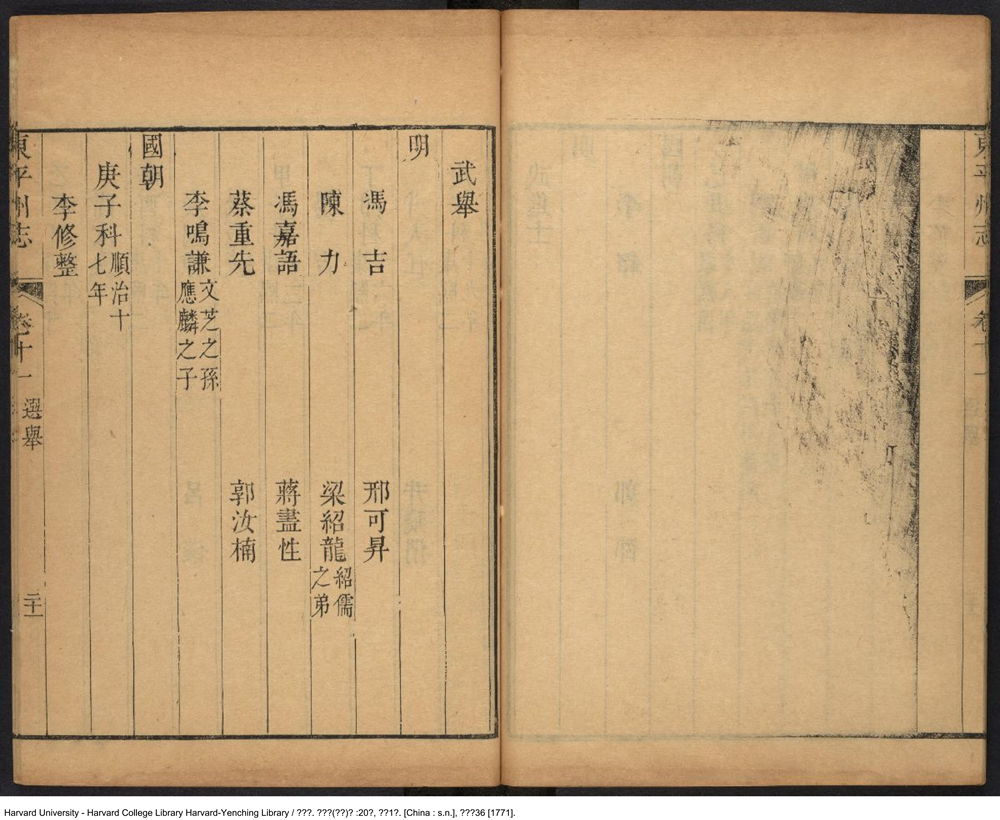 東平州志
卷十一
武舉
明
馮吉 邢可昇
陳力 梁紹龍紹儒之弟
馮嘉語 蔣盡性
蔡重先 郭汝楠
李鳴謙文芝之孫應麟之子
國朝
庚子科順治十七年
李修整
東平州志
卷十一 選舉
二十一
Harvard University - Harvard College Library Harvard-Yenching Library / ???. ???(??)? :20?, ??1?. [China : s.n.], ???36 [1771].